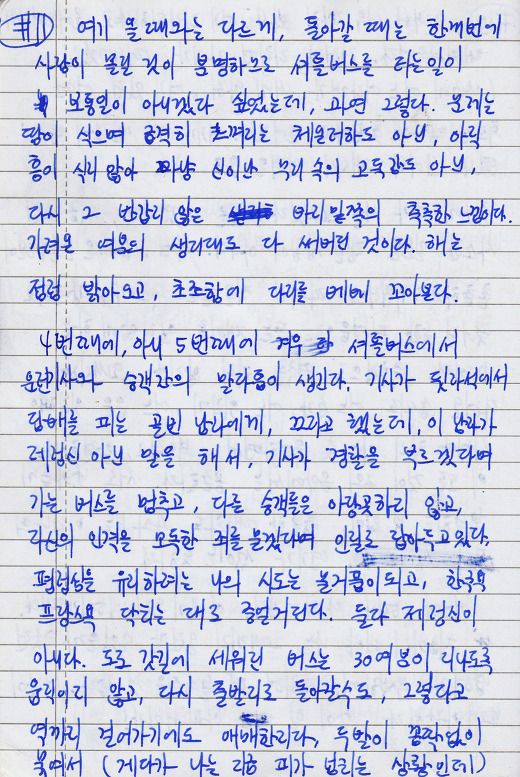 #1 여기 올때와는 다르게, 돌아갈 때는 한꺼번에
사람이 몰린 것이 분명하므로 셔틀버스를 타는일이
보통일이 아니겠다 싶었는데, 과연 그렇다. 문제는
땀이 식으며 급격히 느껴지는 체온저하도 아닌, 아직
흥이 식지 않아 마냥 신이난 무리 속의 고독감도 아닌,
다시 그 반갑지 않은 바리 밑쪽의 축축한 느낌이다.
가려운 여분의 생리대도 다 써버린 것이다. 해는
점점 밝아오고, 초조함에 다리를 베베 꼬아본다.
4번째에, 아니 5번째에 겨우 셔틀버스에서
운전기사와 승객간의 말다툼이 생긴다. 기사가 뒷좌석에서
담배를 피는 골빈 남자에게, 끄라고 했는데, 이 남자가
제정신 아닌 말을 해서, 기사가 경찰을 부르겠다며
가는 버스를 멈추고, 다른 승객들은 아랑곳하지 않고,
자신의 인격을 모독한 죄를 묻겠다며 인질로 잡아두고 있다.
평정심을 유지하려는 나의 시도는 물거품이되고, 한국욕
프랑스욕 닥치는 대로 중얼거린다. 둘다 제정신이
아니다. 도로 갓길에 세워진 버스는 30여분이 지나도록
움직이지 않고, 다시 출발지로 돌아갈수도, 그렇다고
역까지 걸어가기에도 애매한지라, 두발이 꼼짝없이
묶여서 (게다가 나는 지금 피가 넘치는 상황인데)